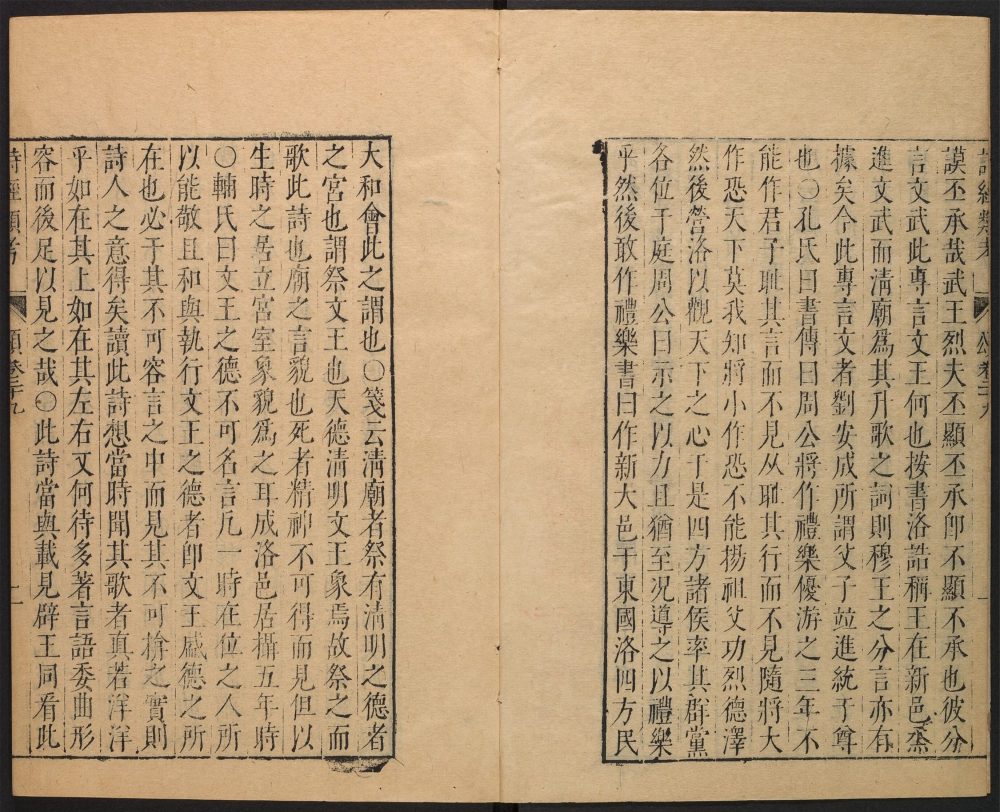 詩經類考 頌卷二十九 一
謨丕承哉武王烈夫丕顯丕承卽不顯不承也彼分
言文武此專言文王何也按書洛誥稱王在新邑烝
進文武而淸廟爲其升歌之詞則穆王之分言亦有
據矣今此專言文者劉安成所謂父子竝進統于尊
也○孔氏曰書傳曰周公將作禮樂優游之三年不
能作君子耻其言而不見从耻其行而不見隨將大
作恐天下莫我知將小作恐不能揚祖父功烈德澤
然後營洛以觀天下之心于是四方諸侯率其群黨
各位于庭周公曰示之以力且猶至况導之以禮樂
乎然後敢作禮樂書曰作新大邑于東國洛四方民
大和會此之謂也○箋云淸廟者祭有淸明之德者
之宮也謂祭文王也天德淸明文王象焉故祭之而
歌此詩也廟之言貌也死者精神不可得而見但以
生時之居立宮室象貌爲之耳成洛邑居攝五年時
○輔氏曰文王之德不可名言凡一時在位之人所
以能敬且和與執行文王之德者卽文王盛德之所
在也必于其不可容言之中而見其不可揜之實則
詩人之意得矣讀此詩想當時聞其歌者真若洋洋
乎如在其上如在其左右又何待多著言語委曲形
容而後足以見之哉○此詩當與載見辟王同看此
詩經類考 頌卷二十九 二